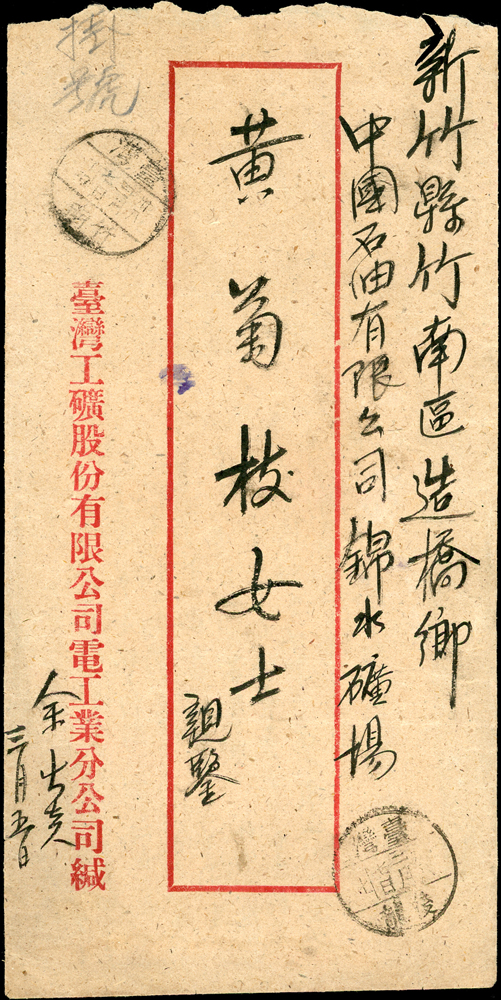 新竹縣竹南區造橋鄉
中國石油有限公司錦水礦場
黃菊枝女士
親鑒
掛號
臺灣
臺灣工礦股份有限公司電工業分公司緘
三月五日
臺灣